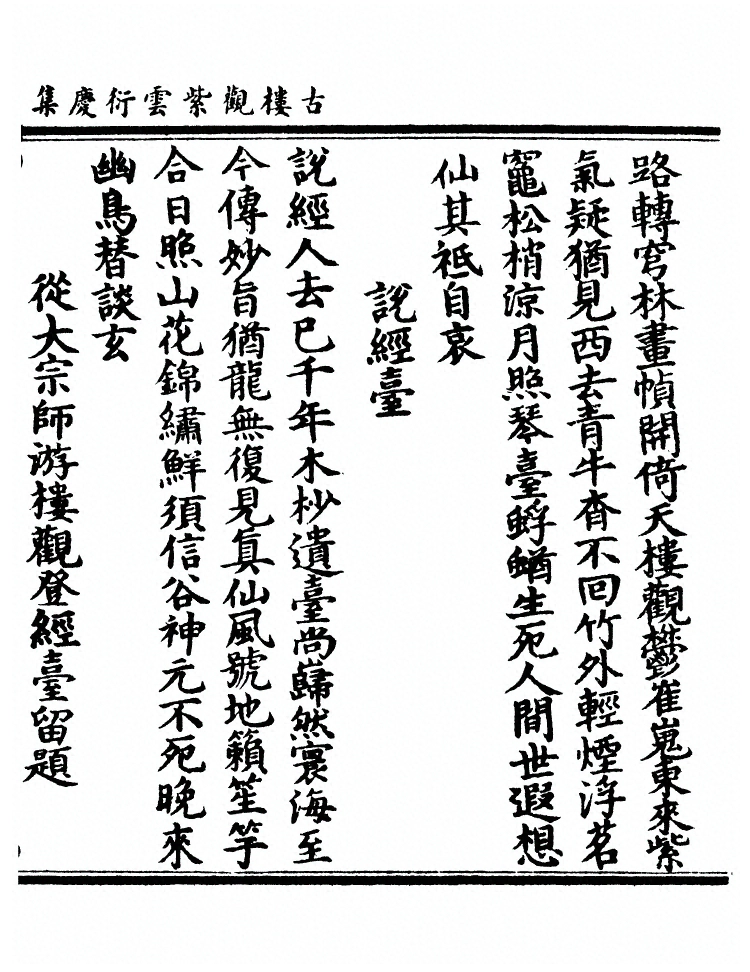 古樓觀紫雲衍慶集
路轉穹林畫幀開倚天樓觀鬱崔嵬東來紫
氣疑猶見西去青牛杳不回竹外輕煙浮茗
竈松梢涼月照琴臺蜉蝤生死人間世遐想
仙其祗自哀
說經臺
說經人去已千年木杪遺臺尚巋然寰海至
今傳妙旨猶龍無復見真仙風號地籟笙竽
合日照山花錦繡鮮須信谷神元不死晚來
幽鳥替談玄
從大宗師游樓觀登經臺留題